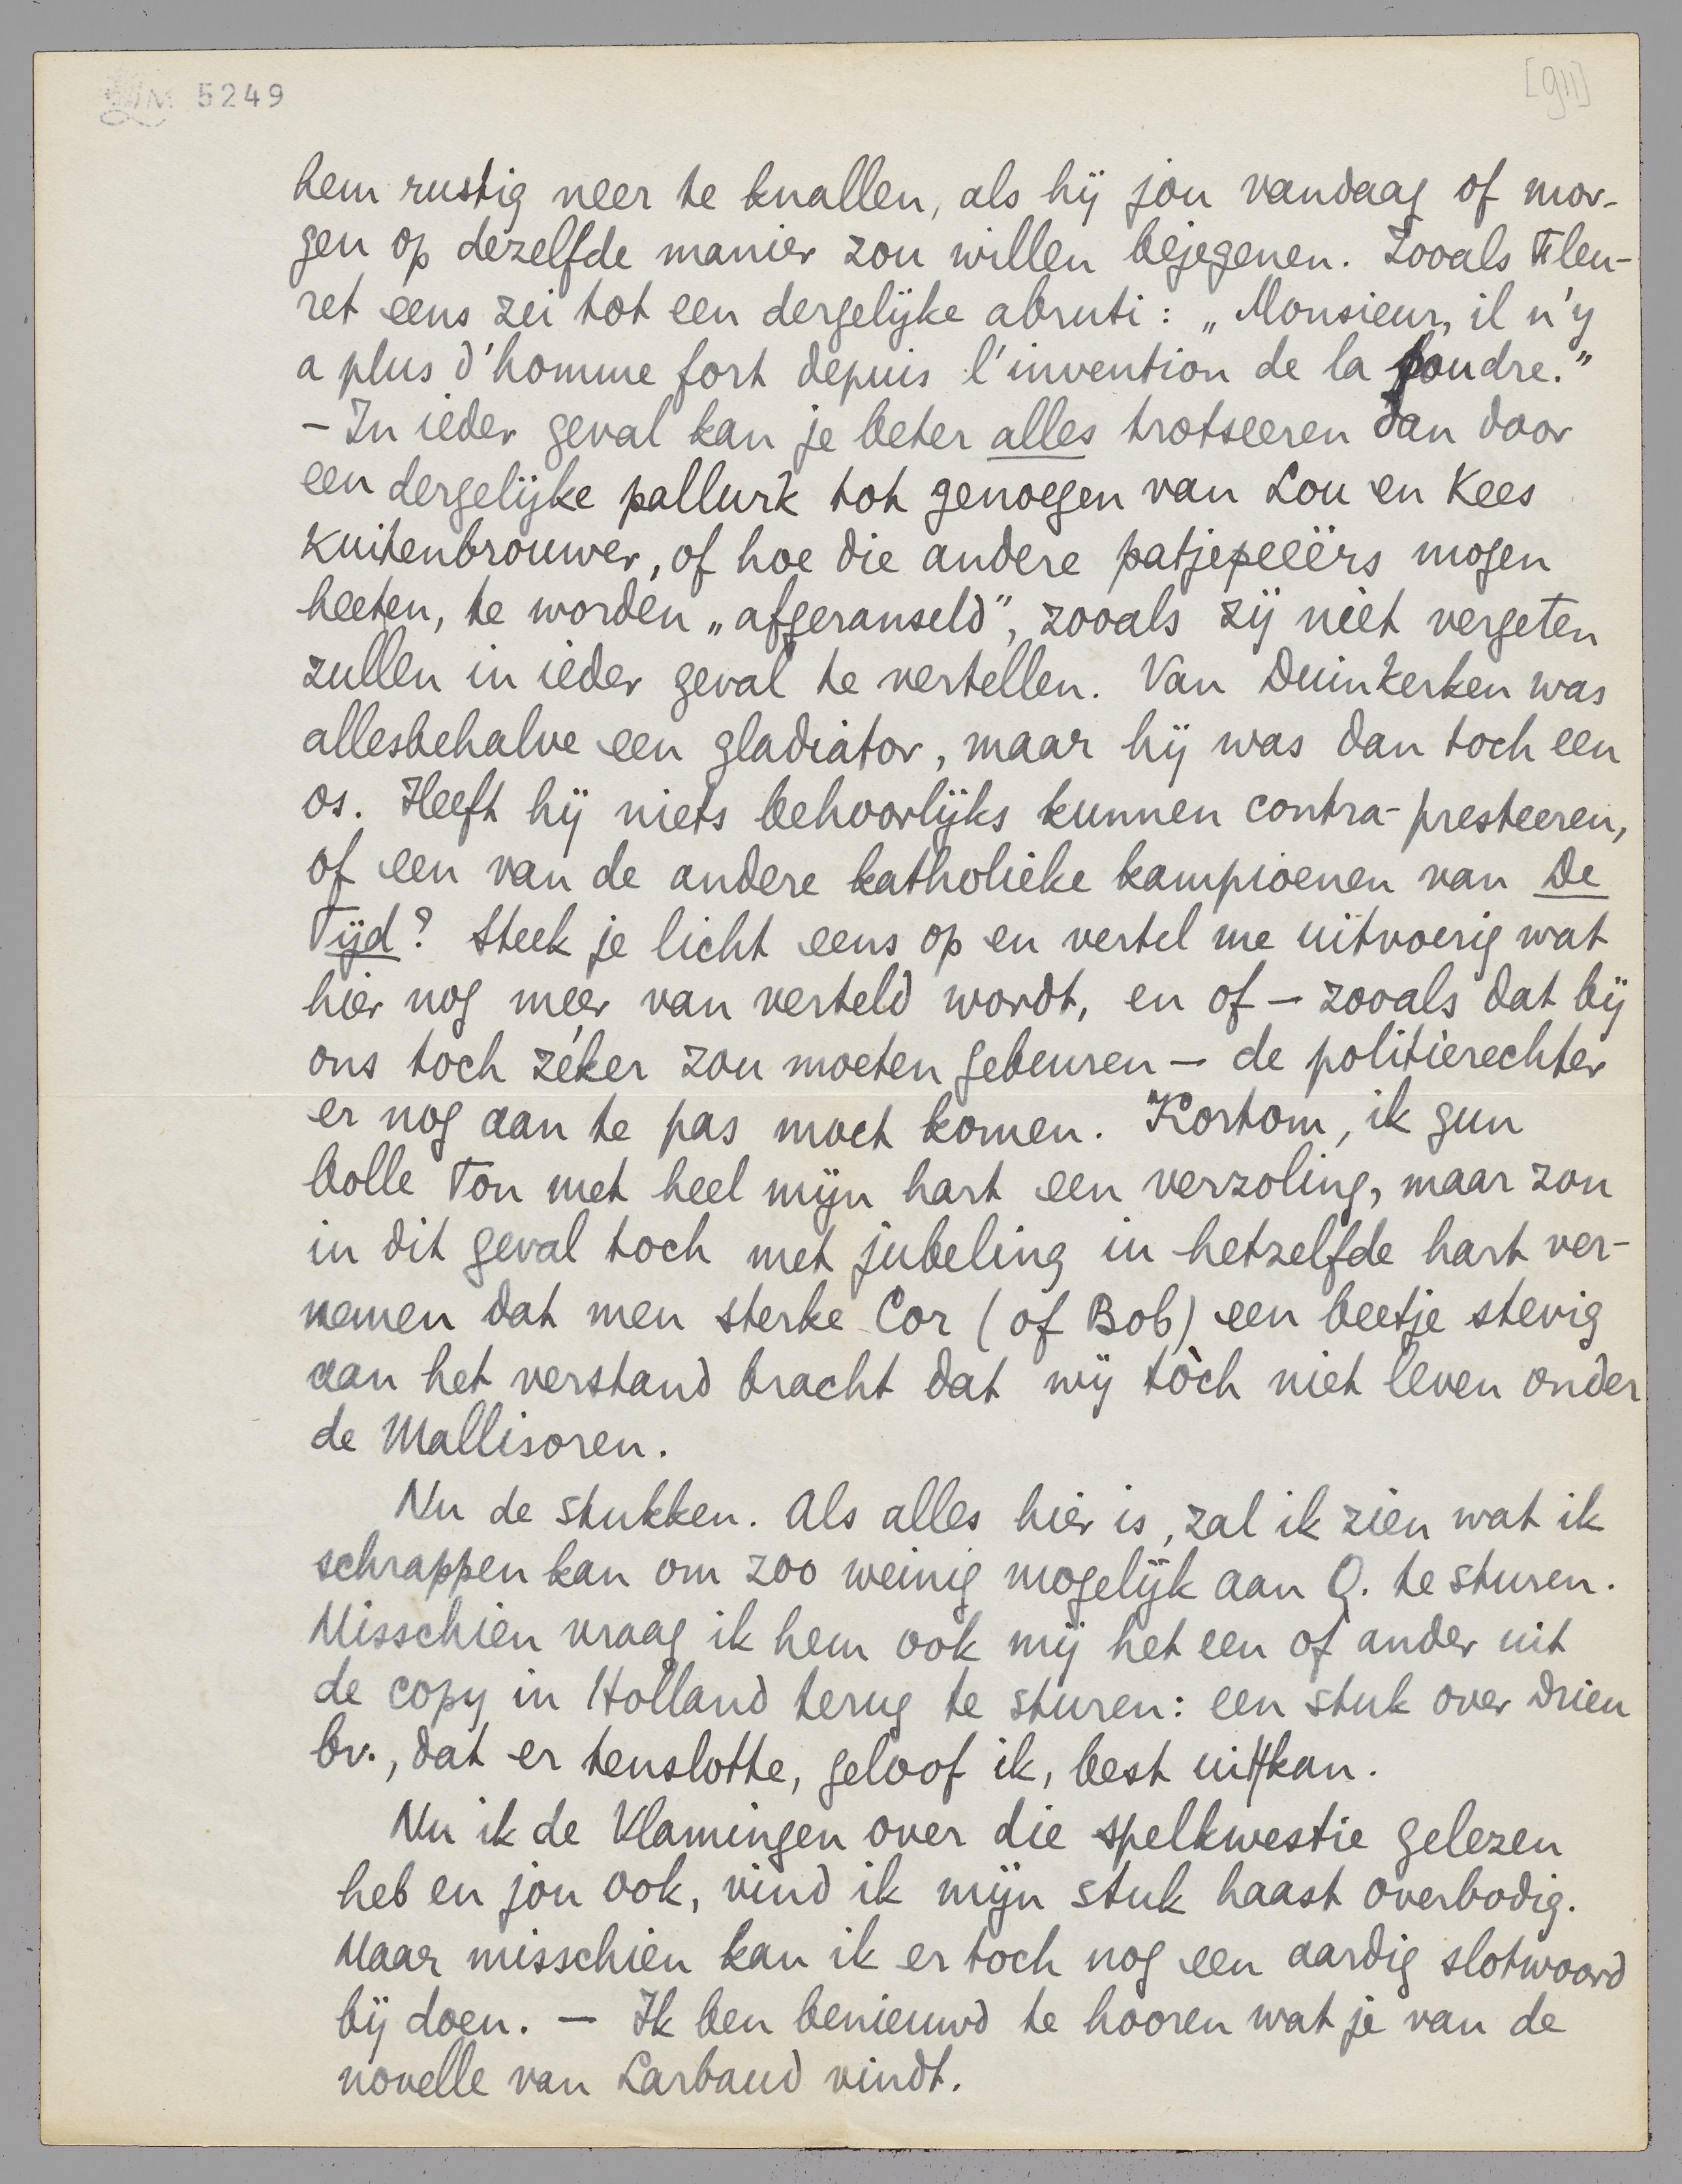 LM 5249
[911]
hem rustig neer te knallen, als hij jou vandaag of mor-
gen op dezelfde manier zou willen bejegenen. Zooals Fleu-
ret eens zei tot een dergelijke abruti: „Monsieur, il n'y
a plus d'homme fort depuis l'invention de la poudre."
– In ieder geval kan je beter alles trotseeren dan door
een dergelijke pallurk tot genoegen van Lou en Kees
Kuitenbrouwer, of hoe die andere patjepeeërs mogen
heeten, te worden „afgeranseld", zooals zij niet vergeten
zullen in ieder geval te vertellen. Van Duinkerken was
allesbehalve een gladiator, maar hij was dan toch een
os. Heeft hij niets behoorlijks kunnen contra-presteeren,
of een van de andere katholieke kampioenen van De
Tijd? Steek je licht eens op en vertel me uitvoerig wat
hier nog meer van verteld wordt, en of – zooals dat bij
ons toch zéker zou moeten gebeuren – de politierechter
er nog aan te pas moet komen. Kortom, ik gun
bolle Ton met heel mijn hart een verzoling, maar zou
in dit geval toch met jubeling in hetzelfde hart ver-
nemen dat men sterke Cor (of Bob) een beetje stevig
aan het verstand bracht dat wij tòch niet leven onder
de Mallisoren.
Nu de stukken. Als alles hier is, zal ik zien wat ik
schrappen kan om zoo weinig mogelijk aan Q. te sturen.
Misschien vraag ik hem ook mij het een of ander uit
de copy in Holland terug te sturen: een stuk over Drieu
bv., dat er tenslotte, geloof ik, best uitkan.
Nu ik de Vlamingen over die spelkwestie gelezen
heb en jou ook, vind ik mijn stuk haast overbodig.
Maar misschien kan ik er toch nog een aardig slotwoord
bij doen. – Ik ben benieuwd te hooren wat je van de
novelle van Larbaud vindt.